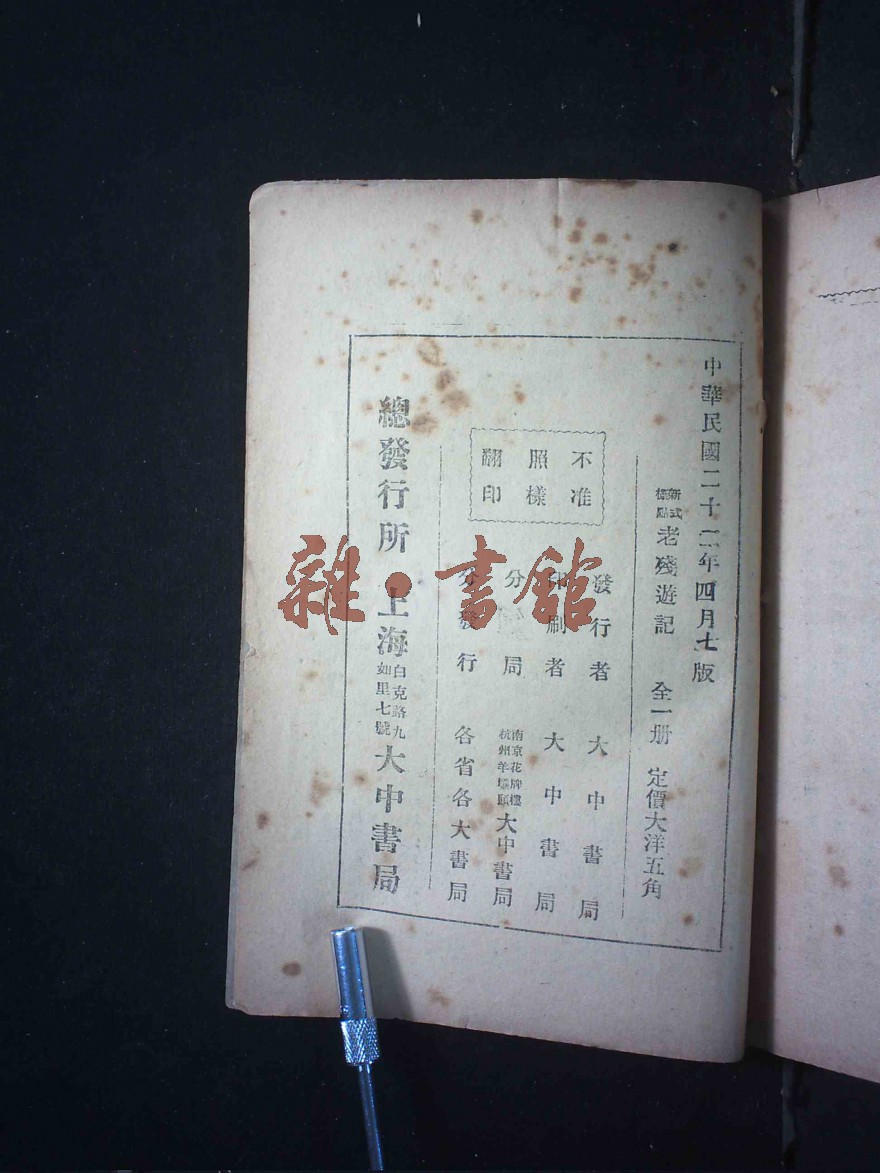 中華民國二十二年四月七版
新式標點老殘遊記 全一册 定價大洋五角
不准
照樣
翻印
發行者 大中書局
印刷者 大中書局
分局 南京花牌樓 杭州羊壩頭 大中書局
分發行 各省各大書局
總發行所 上海 白克路九如里七號 大中書局
雜·書館